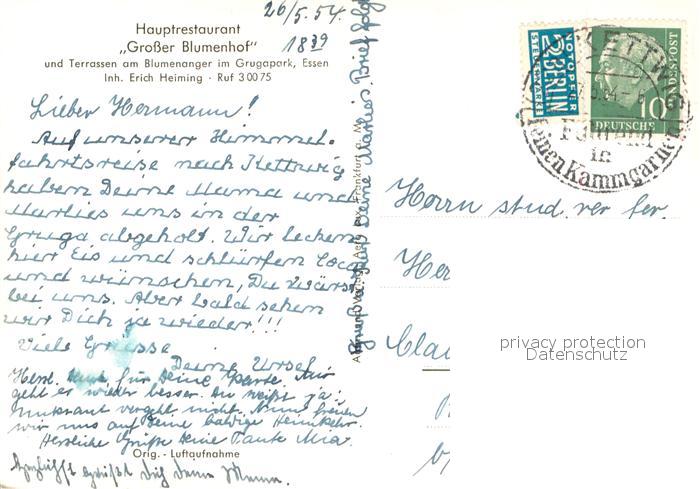 26/5.54.
1839
Hauptrestaurant
„Großer Blumenhof"
und Terrassen am Blumenanger im Grugapark, Essen
Inh. Erich Heiming · Ruf 3 00 75
Lieber Hermann!
Auf unserer Himmel-
fahrtsreise nach Kettwig
haben Deine Mama und
Marlies uns in der
Gruga abgeholt. Wir lecken
hier Eis und schlürfen Coca
und wünschen, Du wärst
bei uns. Aber bald sehen
wir Dich ja wieder!!!
Viele Grüsse
Deine Ursel
Herzl. Dank für Deine Karte. Mir
geht es wieder besser. Du weißt ja:
Unkraut vergeht nicht. Nun freuen
wir uns auf Deine baldige Heimkehr.
Herzliche Grüße Deine Tante Mia.
Orig. - Luftaufnahme
grüßt Dich Deine Mama.
Deine Marlies Brief folgt
Frankfurt a. M.
NOTOPFER
2 BERLIN
STEUERMARKE
KETTWIG
DEUTSCHE
BUNDESPOST
10
in
feinen Kammgarnen
Herrn stud. rer. ser.
privacy protection
Datenschutz